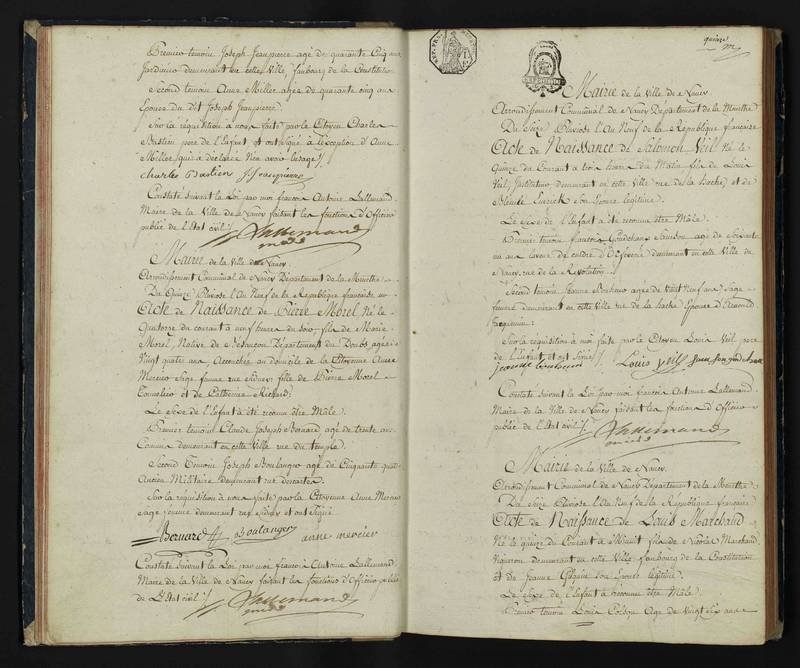 Premier temoin Joseph Jeanpierre agé de quarante Cinq ans
Jardinier demeurant en cette Ville, faubourg de la Constitution
Second temoin Anne Miller agée de quarante cinq ans
Epouse du dit Joseph Jeanpierre
Sur la réquisition à nous faite par le Citoyen Charles
Bastien pere de l'Enfant et ont signé à l'exception d'Anne
Miller qui a déclaré n'en avoir l'usage
charles Bastien J. Jeanpierre
Constaté suivant la Loi par moi françois Antoine Lallemand
Maire de la Ville de Nancy faisant les fonctions d'Officier
public de l'Etat civil
Lallemand
Mairie de la Ville de Nancy.
Arrondissement Communal de Nancy Département de la Meurthe
Du Quinze Pluviose l'An Neuf de la République française
Acte de Naissance de Pierre Morel Né le
Quatorze du courant à neuf heures du soir fils de Marie
Morel, Native de Besançon Département du Doubs agée
Vingt quatre ans, Accouchée au domicile de la Citoyenne Anne
Mercier Sage femme rue Sidney, fille de Pierre Morel
Tonnelier et de Catherine Richard
Le Sexe de l'Enfant à été reconnu être Mâle
Premier temoin Claude Joseph Bernard agé de trente ans
Commis demeurant en cette Ville rue du temple
Second Temoin Joseph Boulanger agé de Cinquante quatre
Ancien Militaire demeurant rue descartes
Sur la réquisition à nous faite par la Citoyenne Anne Mercier
Sage femme demeurant rue Sidney et ont signé
Bernard Boulanger anne mercier
Constaté suivant la Loi par moi françois Antoine Lallemand
Maire de la Ville de Nancy faisant les fonctions d'Officier public
de l'Etat civil
Lallemand
quinze
Mairie de la Ville de Nancy
Arrondissement Communal de Nancy Département de la Meurthe
Du Seize Pluviose l'An Neuf de la République française
Acte de Naissance de Salomon Veil Né le
Quinze du Courant à trois heures du Matin fils de Louis
Veil, Instituteur demeurant en cette Ville rue de la hache, et de
son Epouse légitime
Le Sexe de l'Enfant a été reconnu être Mâle
Premier temoin françois Goudchaux Samson agé de Soixante
demeurant en cette Ville de
Nancy rue de la Révolution
Second temoin Jeanne agée de Vingt Neuf ans Sage
femme demeurant en cette Ville rue de la hache Epouse d'Arnould
Sur la réquisition à moi faite par le Citoyen Louis Veil pere
de l'Enfant et ont signé
Louis Veil
Constaté suivant la Loi par moi françois Antoine Lallemand
Maire de la Ville de Nancy faisant les fonctions d'Officier
public de l'Etat civil
Lallemand
Mairie de la Ville de Nancy
Arrondissement Communal de Nancy Département de la Meurthe
Du Seize Pluviose l'An Neuf de la République française
Acte de Naissance de Louis Marchand
Né le quinze du Courant à Minuit fils de Nicolas Marchand
Vigneron demeurant en cette Ville faubourg de la Constitution
et de Jeanne son Epouse légitime
Le Sexe de l'Enfant a reconnu être Mâle
Premier temoin Louis agé de Vingt Six ans